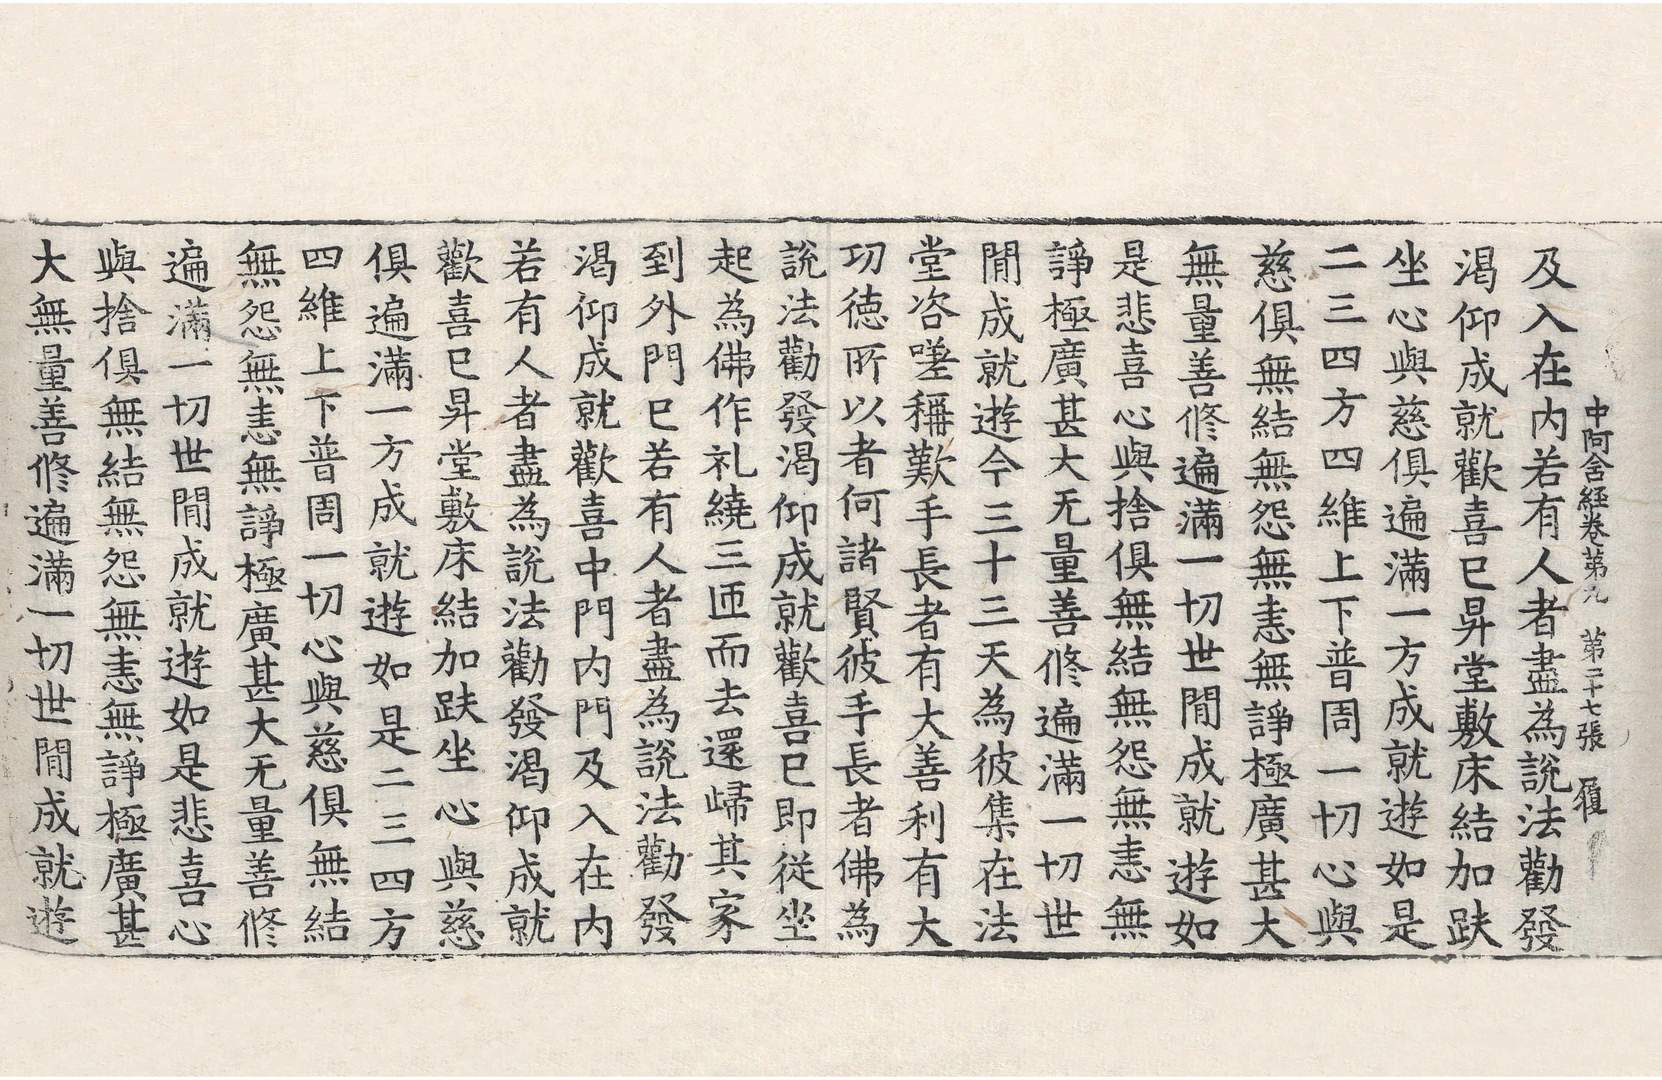 中阿含經卷第九　第二十七張　履
及入在内若有人者盡為說法勸發
渴仰成就歡喜已昇堂敷床結加趺
坐心與慈俱遍滿一方成就遊如是
二三四方四維上下普周一切心與
慈俱無結無怨無恚無諍極廣甚大
無量善修遍滿一切世間成就遊如
是悲喜心與捨俱無結無怨無恚無
諍極廣甚大无量善修遍滿一切世
間成就遊今三十三天為彼集在法
堂咨嗟稱歎手長者有大善利有大
功徳所以者何諸賢彼手長者佛為
說法勸發渴仰成就歡喜已即從坐
起為佛作礼繞三匝而去還歸其家
到外門已若有人者盡為說法勸發
渴仰成就歡喜中門内門及入在内
若有人者盡為說法勸發渴仰成就
歡喜已昇堂敷床結加趺坐心與慈
俱遍滿一方成就遊如是二三四方
四維上下普周一切心與慈俱無結
無怨無恚無諍極廣甚大无量善修
遍滿一切世間成就遊如是悲喜心
與捨俱無結無怨無恚無諍極廣甚
大無量善修遍滿一切世間成就遊